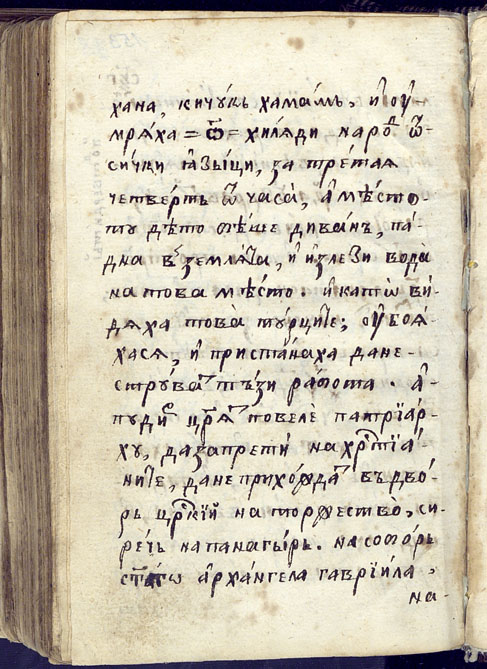 хана, кичукь хамамь. и оу-
мряха = ѿ = хиляди наро́д ѿ-
си́чки iазы́ци, за тре́тая
че́тверть ѿ часа̀, а мѣ́сто-
ту дѣ́то бѣ́ше дива́нъ, па́-
дна въ земля́та, и излези вода̀
на това мѣ́сто. и като̀ ви́-
дяха това̀ ту́рците; оубоя́-
хася, и приста́наха да не-
струва́т тъ́зи ра́бота. а-
пуди́с цр҃я́т повелѐ патрїа́р-
ху, да запрети́ на хр҃тїа́-
ните, да не прихо́ждат въ дво́-
рь цр҃кїй на торжество̀, си-
речь на панагы́рь. на соборь
ст҃а́гѡ арха́нгела гаврїи́ла,
на-